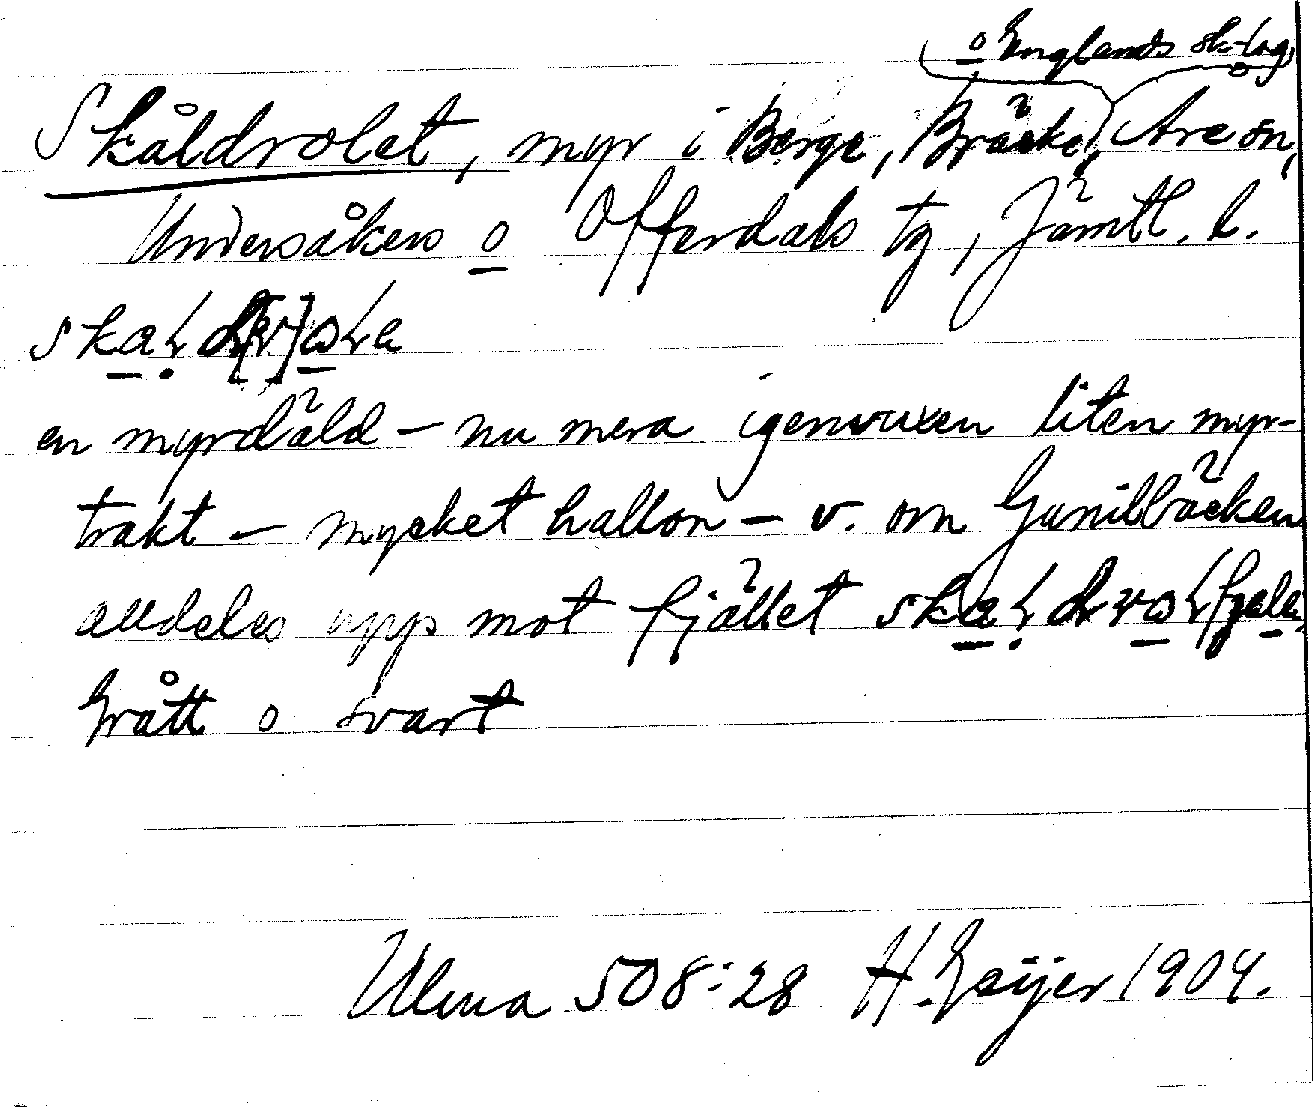 o Englands sk-lag
Skåldrolet, myr i Berge, Bräcke, Are sn,
Undersåkers o Offerdals tg, Jämtl. l.
en myrdäld – nu mera igenvuxen liten myr-
trakt – mycket hallon – v. om Gunilbäcken
alldeles upp mot fjället
Grått o svart
Ulma 508:28 H. Geijer 1904.